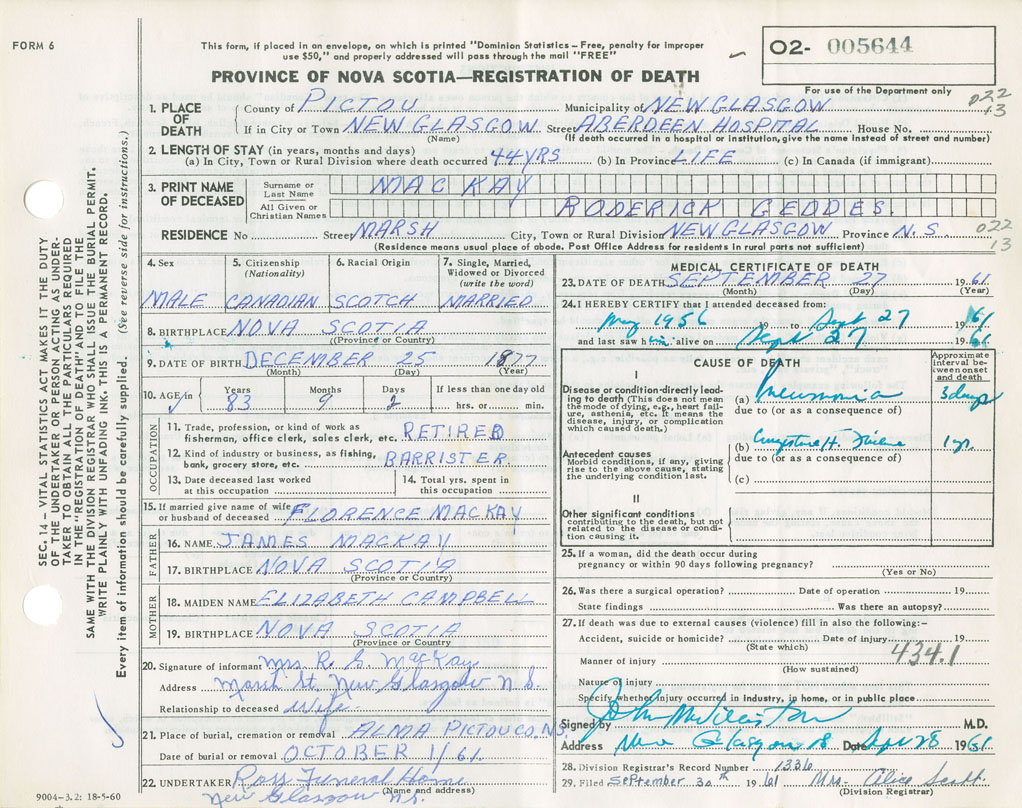 FORM 6
This form, if placed in an envelope, on which is printed "Dominion Statistics – Free, penalty for improper
use $50," and properly addressed will pass through the mail "FREE"
O2- 005644
For use of the Department only
PROVINCE OF NOVA SCOTIA—REGISTRATION OF DEATH
022
13
1. PLACE OF DEATH
County of PICTOU Municipality of NEW GLASGOW
If in City or Town NEW GLASGOW Street ABERDEEN HOSPITAL House No.
(Name) (If death occurred in a hospital or institution, give the name instead of street and number)
2. LENGTH OF STAY (in years, months and days)
(a) In City, Town or Rural Division where death occurred 44 YRS (b) In Province LIFE (c) In Canada (if immigrant)
3. PRINT NAME OF DECEASED
Surname or Last Name MACKAY
All Given or Christian Names RODERICK GEDDES.
RESIDENCE No Street MARSH City, Town or Rural Division NEW GLASGOW Province N.S. 022
13
(Residence means usual place of abode. Post Office Address for residents in rural parts not sufficient)
4. Sex
MALE
5. Citizenship (Nationality)
CANADIAN
6. Racial Origin
SCOTCH
7. Single, Married, Widowed or Divorced (write the word)
MARRIED
8. BIRTHPLACE NOVA SCOTIA
(Province or Country)
9. DATE OF BIRTH DECEMBER 25 1877
(Month) (Day) (Year)
10. AGE in Years Months Days If less than one day old
83 9 2 hrs. or min.
OCCUPATION
11. Trade, profession, or kind of work as
fisherman, office clerk, sales clerk, etc. RETIRED
12. Kind of industry or business, as fishing,
bank, grocery store, etc. BARRISTER
13. Date deceased last worked
at this occupation
14. Total yrs. spent in
this occupation
15. If married give name of wife
or husband of deceased FLORENCE MACKAY
FATHER
16. NAME JAMES MACKAY
17. BIRTHPLACE NOVA SCOTIA
(Province or Country)
MOTHER
18. MAIDEN NAME ELIZABETH CAMPBELL
19. BIRTHPLACE NOVA SCOTIA
(Province or Country)
20. Signature of informant Mrs. R. G. MacKay
Address Marsh St. New Glasgow N.S.
Relationship to deceased Wife
21. Place of burial, cremation or removal ALMA PICTOU CO. N.S.
Date of burial or removal OCTOBER 1/61.
22. UNDERTAKER Ross Funeral Home
(Name and address)
New Glasgow N.S.
9004-3.2: 18-5-60
MEDICAL CERTIFICATE OF DEATH
23. DATE OF DEATH SEPTEMBER 27 1961
(Month) (Day) (Year)
24. I HEREBY CERTIFY that I attended deceased from:
May 1956 19 to Sept 27 1961
and last saw him alive on Sept 27 1961
CAUSE OF DEATH
Approximate interval between onset and death
I
Disease or condition directly leading to death (This does not mean the mode of dying, e.g., heart failure, asthenia, etc. It means the disease, injury, or complication which caused death.)
(a) Pneumonia 3 days
due to (or as a consequence of)
Antecedent causes
Morbid conditions, if any, giving rise to the above cause, stating the underlying condition last.
(b) Congestive H. Failure 1 yr.
due to (or as a consequence of)
(c)
II
Other significant conditions
contributing to the death, but not related to the disease or condition causing it.
25. If a woman, did the death occur during
pregnancy or within 90 days following pregnancy?
(Yes or No)
26. Was there a surgical operation? Date of operation 19
State findings Was there an autopsy?
27. If death was due to external causes (violence) fill in also the following:—
Accident, suicide or homicide? Date of injury 19
(State which)
434.1
Manner of injury
(How sustained)
Nature of injury
Specify whether injury occurred in industry, in home, or in public place
Signed by John M Williston M.D.
Address New Glasgow NS Date Sept 28 1961
28. Division Registrar's Record Number 1336
29. Filed September 30th 1961 Mrs. Alice Scott.
(Division Registrar)
SEC. 14 – VITAL STATISTICS ACT MAKES IT THE DUTY
OF THE UNDERTAKER OR PERSON ACTING AS UNDER-
TAKER TO OBTAIN ALL THE PARTICULARS REQUIRED
IN THE "REGISTRATION OF DEATH" AND TO FILE THE
SAME WITH THE DIVISION REGISTRAR WHO SHALL ISSUE THE BURIAL PERMIT.
WRITE PLAINLY WITH UNFADING INK. THIS IS A PERMANENT RECORD.
Every item of information should be carefully supplied. (See reverse side for instructions.)